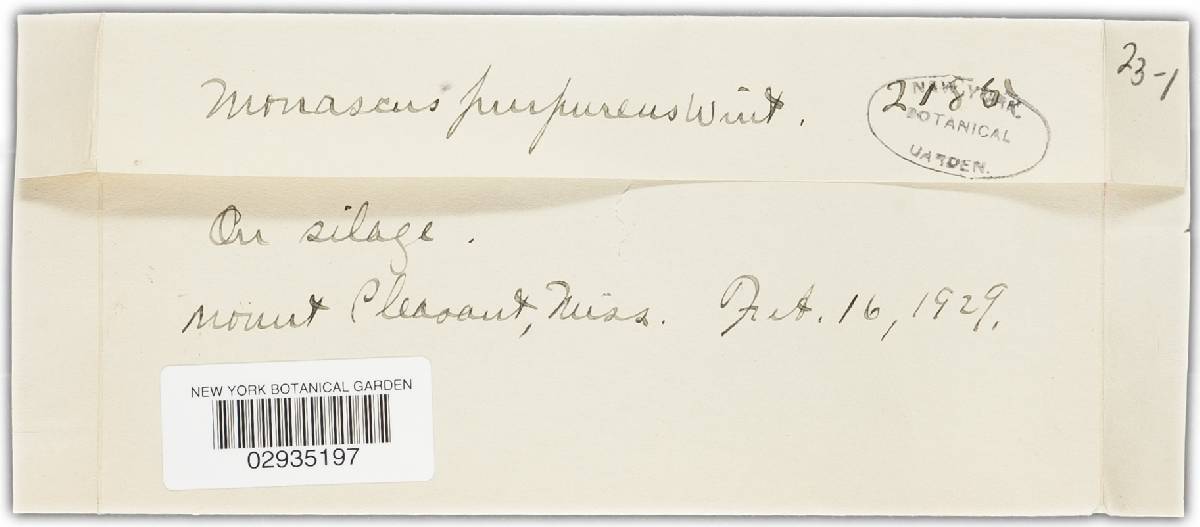 23-1
Monascus purpureus Wint.
NEW YORK
BOTANICAL
GARDEN.
On silage.
Mount Pleasant, Miss. Feb. 16, 1929.
NEW YORK BOTANICAL GARDEN
02935197